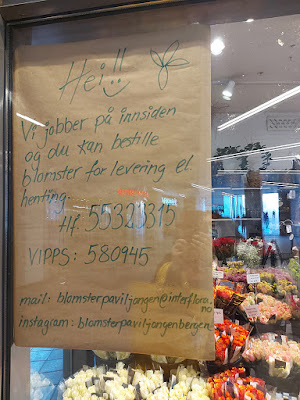 Hei!!
Vi jobber på innsiden
og du kan bestille
blomster for levering el.
henting.
tlf. 55323315
VIPPS: 580945
mail: blomsterpaviljongen@interflora.
no
instagram: blomsterpaviljongenbergen